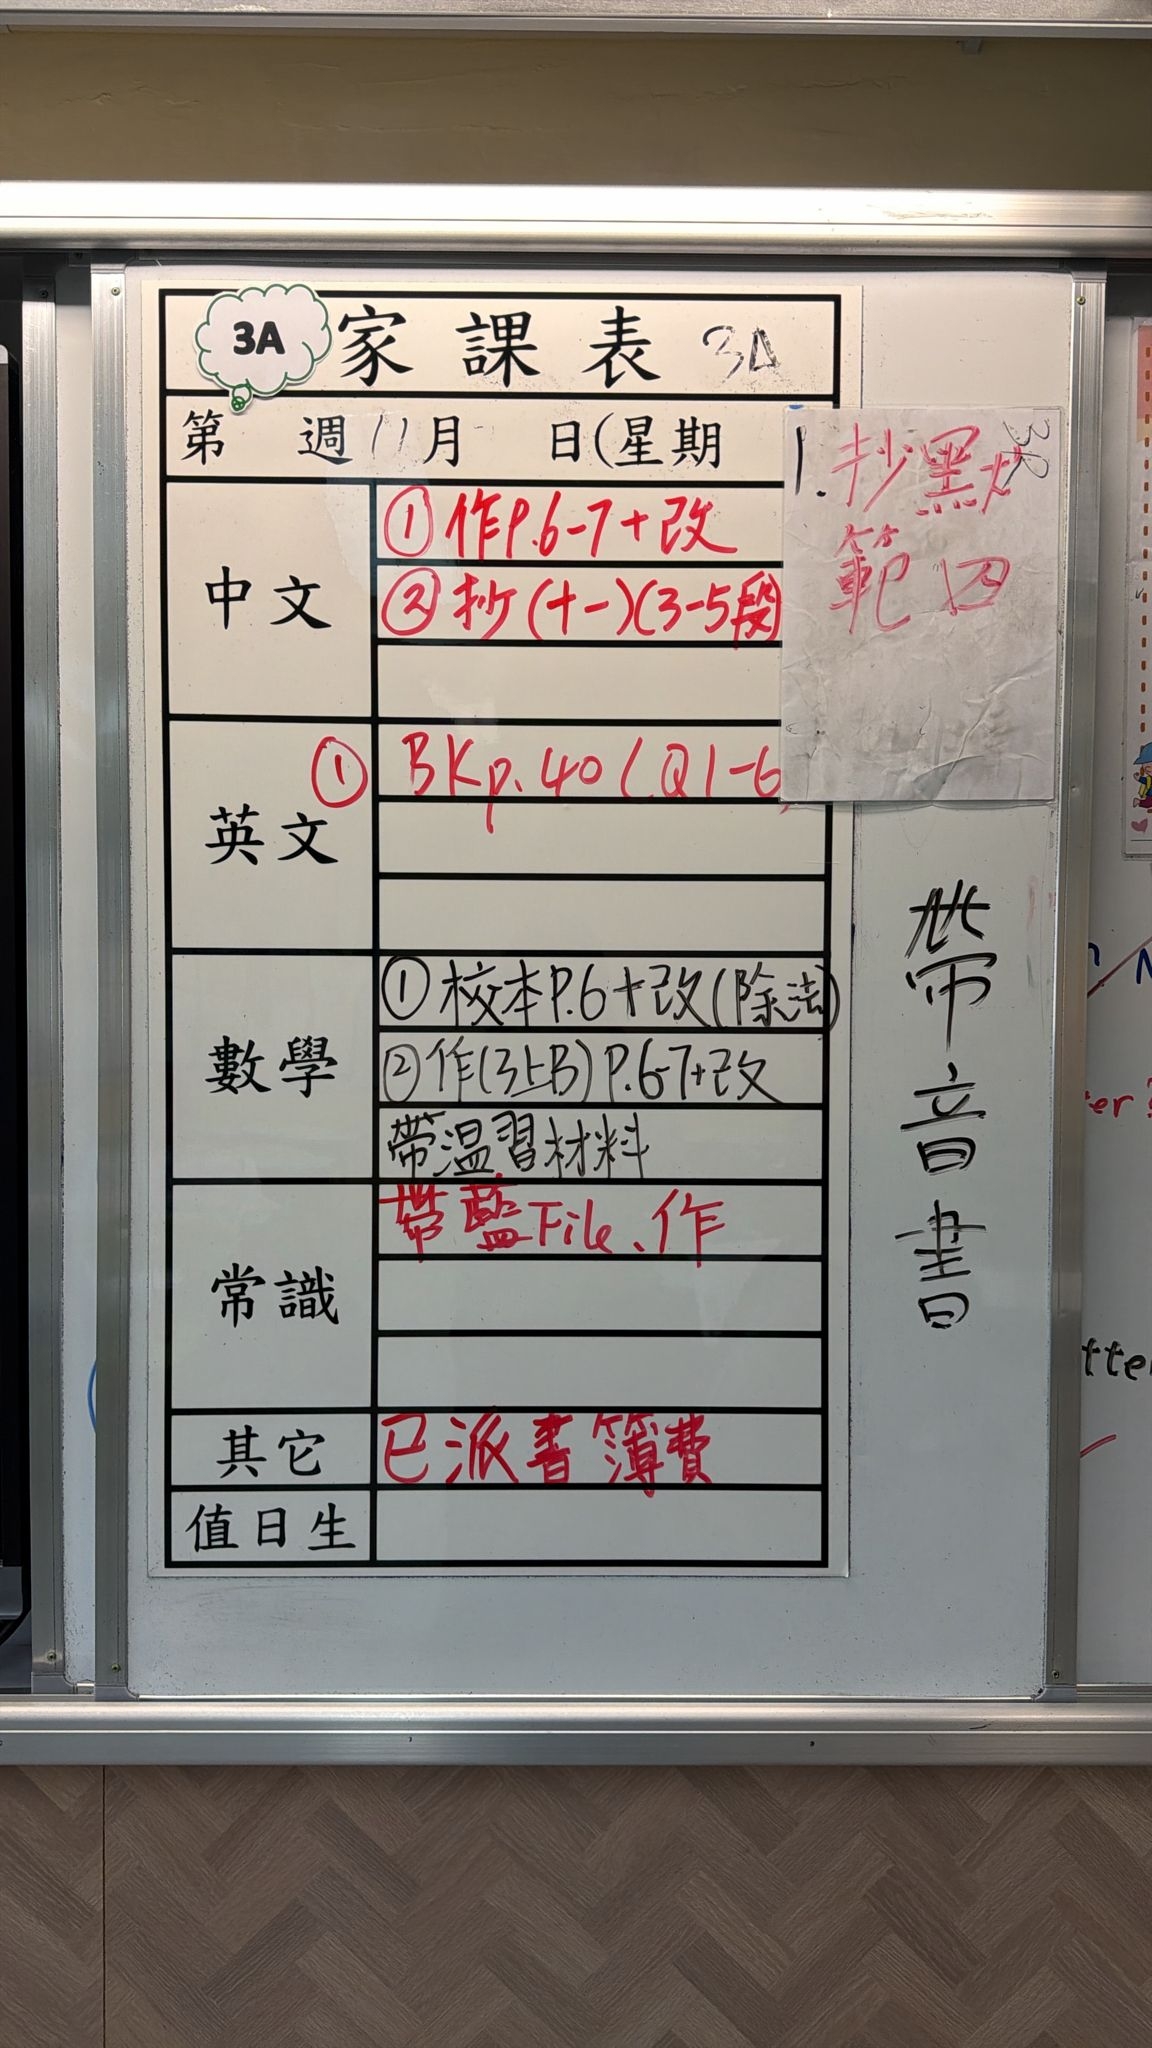 3A 家課表 3A
第 週 11月 日(星期
中文
①作P.6-7+改
②抄(十一)(3-5段)
英文
① BKp.40(Q1-6
數學
①校本P.6+改(除法)
②作(3上B)P.6-7+改
帶溫習材料
常識
帶藍File、作
其它
已派書簿費
值日生
1.抄默
範囚
帶音書
er?
tte